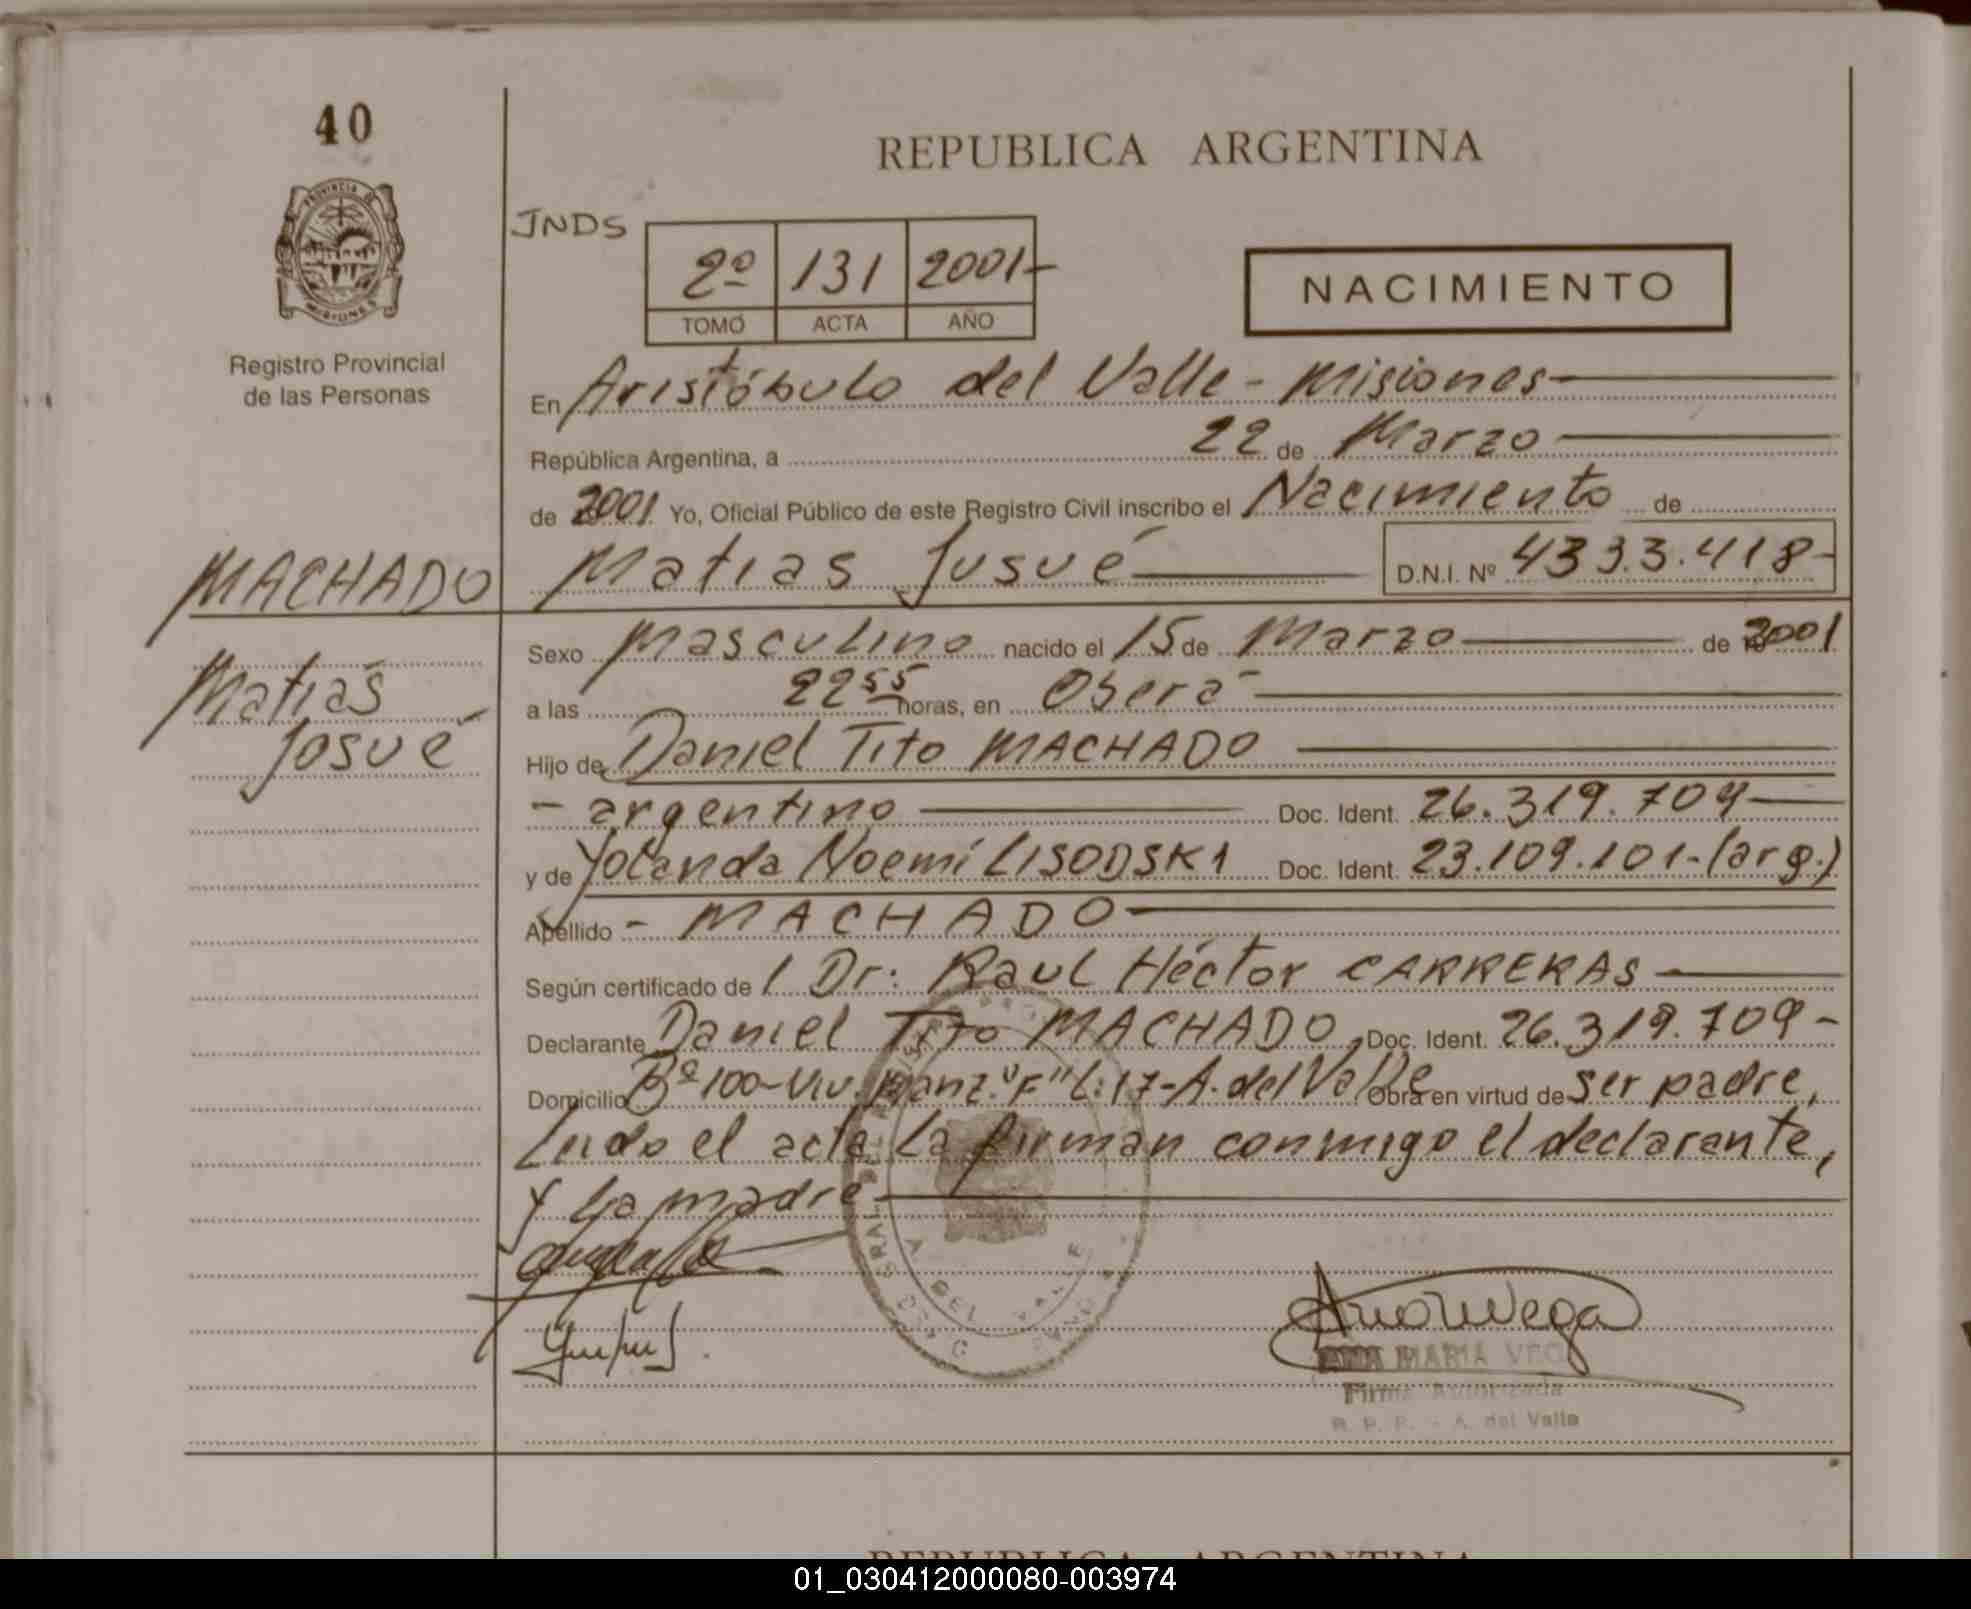 40
PROVINCIA DE
MISIONES
Registro Provincial
de las Personas
REPUBLICA ARGENTINA
JNDS
2º 131 2001-
TOMO ACTA AÑO
NACIMIENTO
En Aristóbulo del Valle - Misiones
República Argentina, a 22 de Marzo
de 2001 Yo, Oficial Público de este Registro Civil inscribo el Nacimiento de
Matias Josué D.N.I. Nº 4333.418-
MACHADO
Matias
Josué
Sexo Masculino nacido el 15 de Marzo de 2001
a las 22 55 horas, en Oberá
Hijo de Daniel Tito MACHADO
- argentino Doc. Ident. 26.319.709
y de Yolanda Noemí LISODSKI Doc. Ident. 23.109.101-(arg.)
Apellido - MACHADO
Según certificado de / Dr: Raul Héctor CARRERAS
Declarante Daniel Tito MACHADO Doc. Ident. 26.319.709-
Domicilio Bº 100-Viv. Manz. "F" L:17-A. del Valle Obra en virtud de ser padre,
Leido el acta la firman conmigo el declarante,
y la madre
DEL VALLE
ANA MARIA VEGA
Firma Autorizada
R. P. P. - A. del Valle
REPUBLICA ARGENTINA
01_030412000080-003974